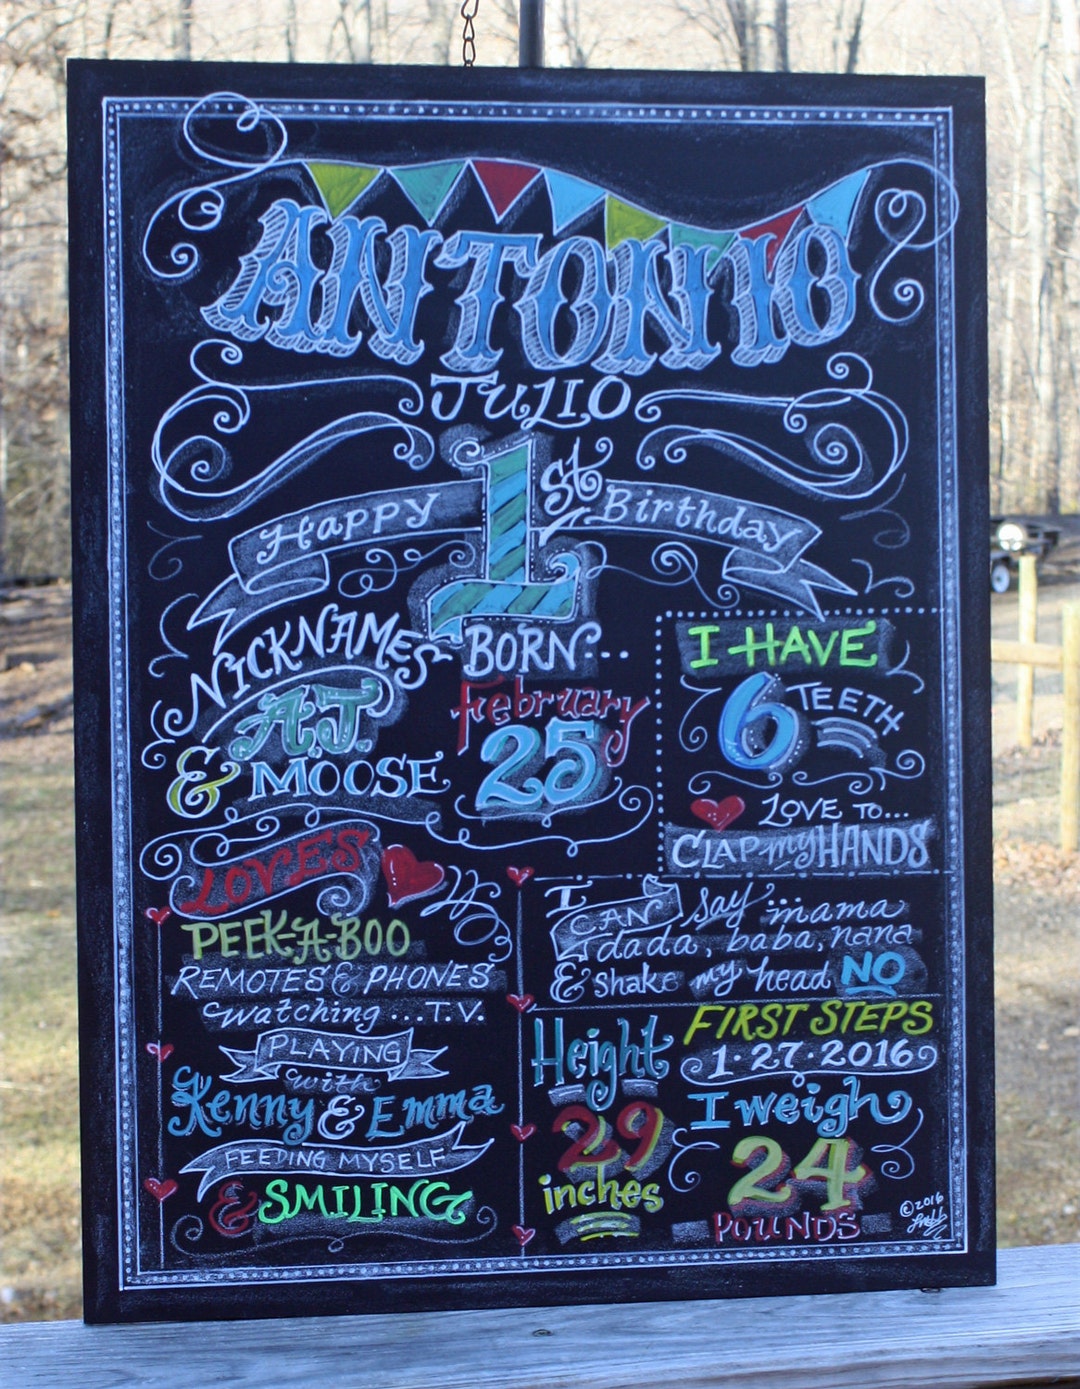 ANTONIO
JULIO
Happy 1st Birthday
NICKNAMES
A.J.
& MOOSE
BORN...
February
25
I HAVE
6 TEETH
LOVE TO...
CLAP my HANDS
LOVES
PEEK-A-BOO
REMOTES & PHONES
watching ...T.V.
PLAYING
with
Kenny & Emma
FEEDING MYSELF
& SMILING
I CAN say ...mama
dada, baba, nana
& shake my head NO
Height
29
inches
FIRST STEPS
1·27·2016
I weigh
24
POUNDS
©2016